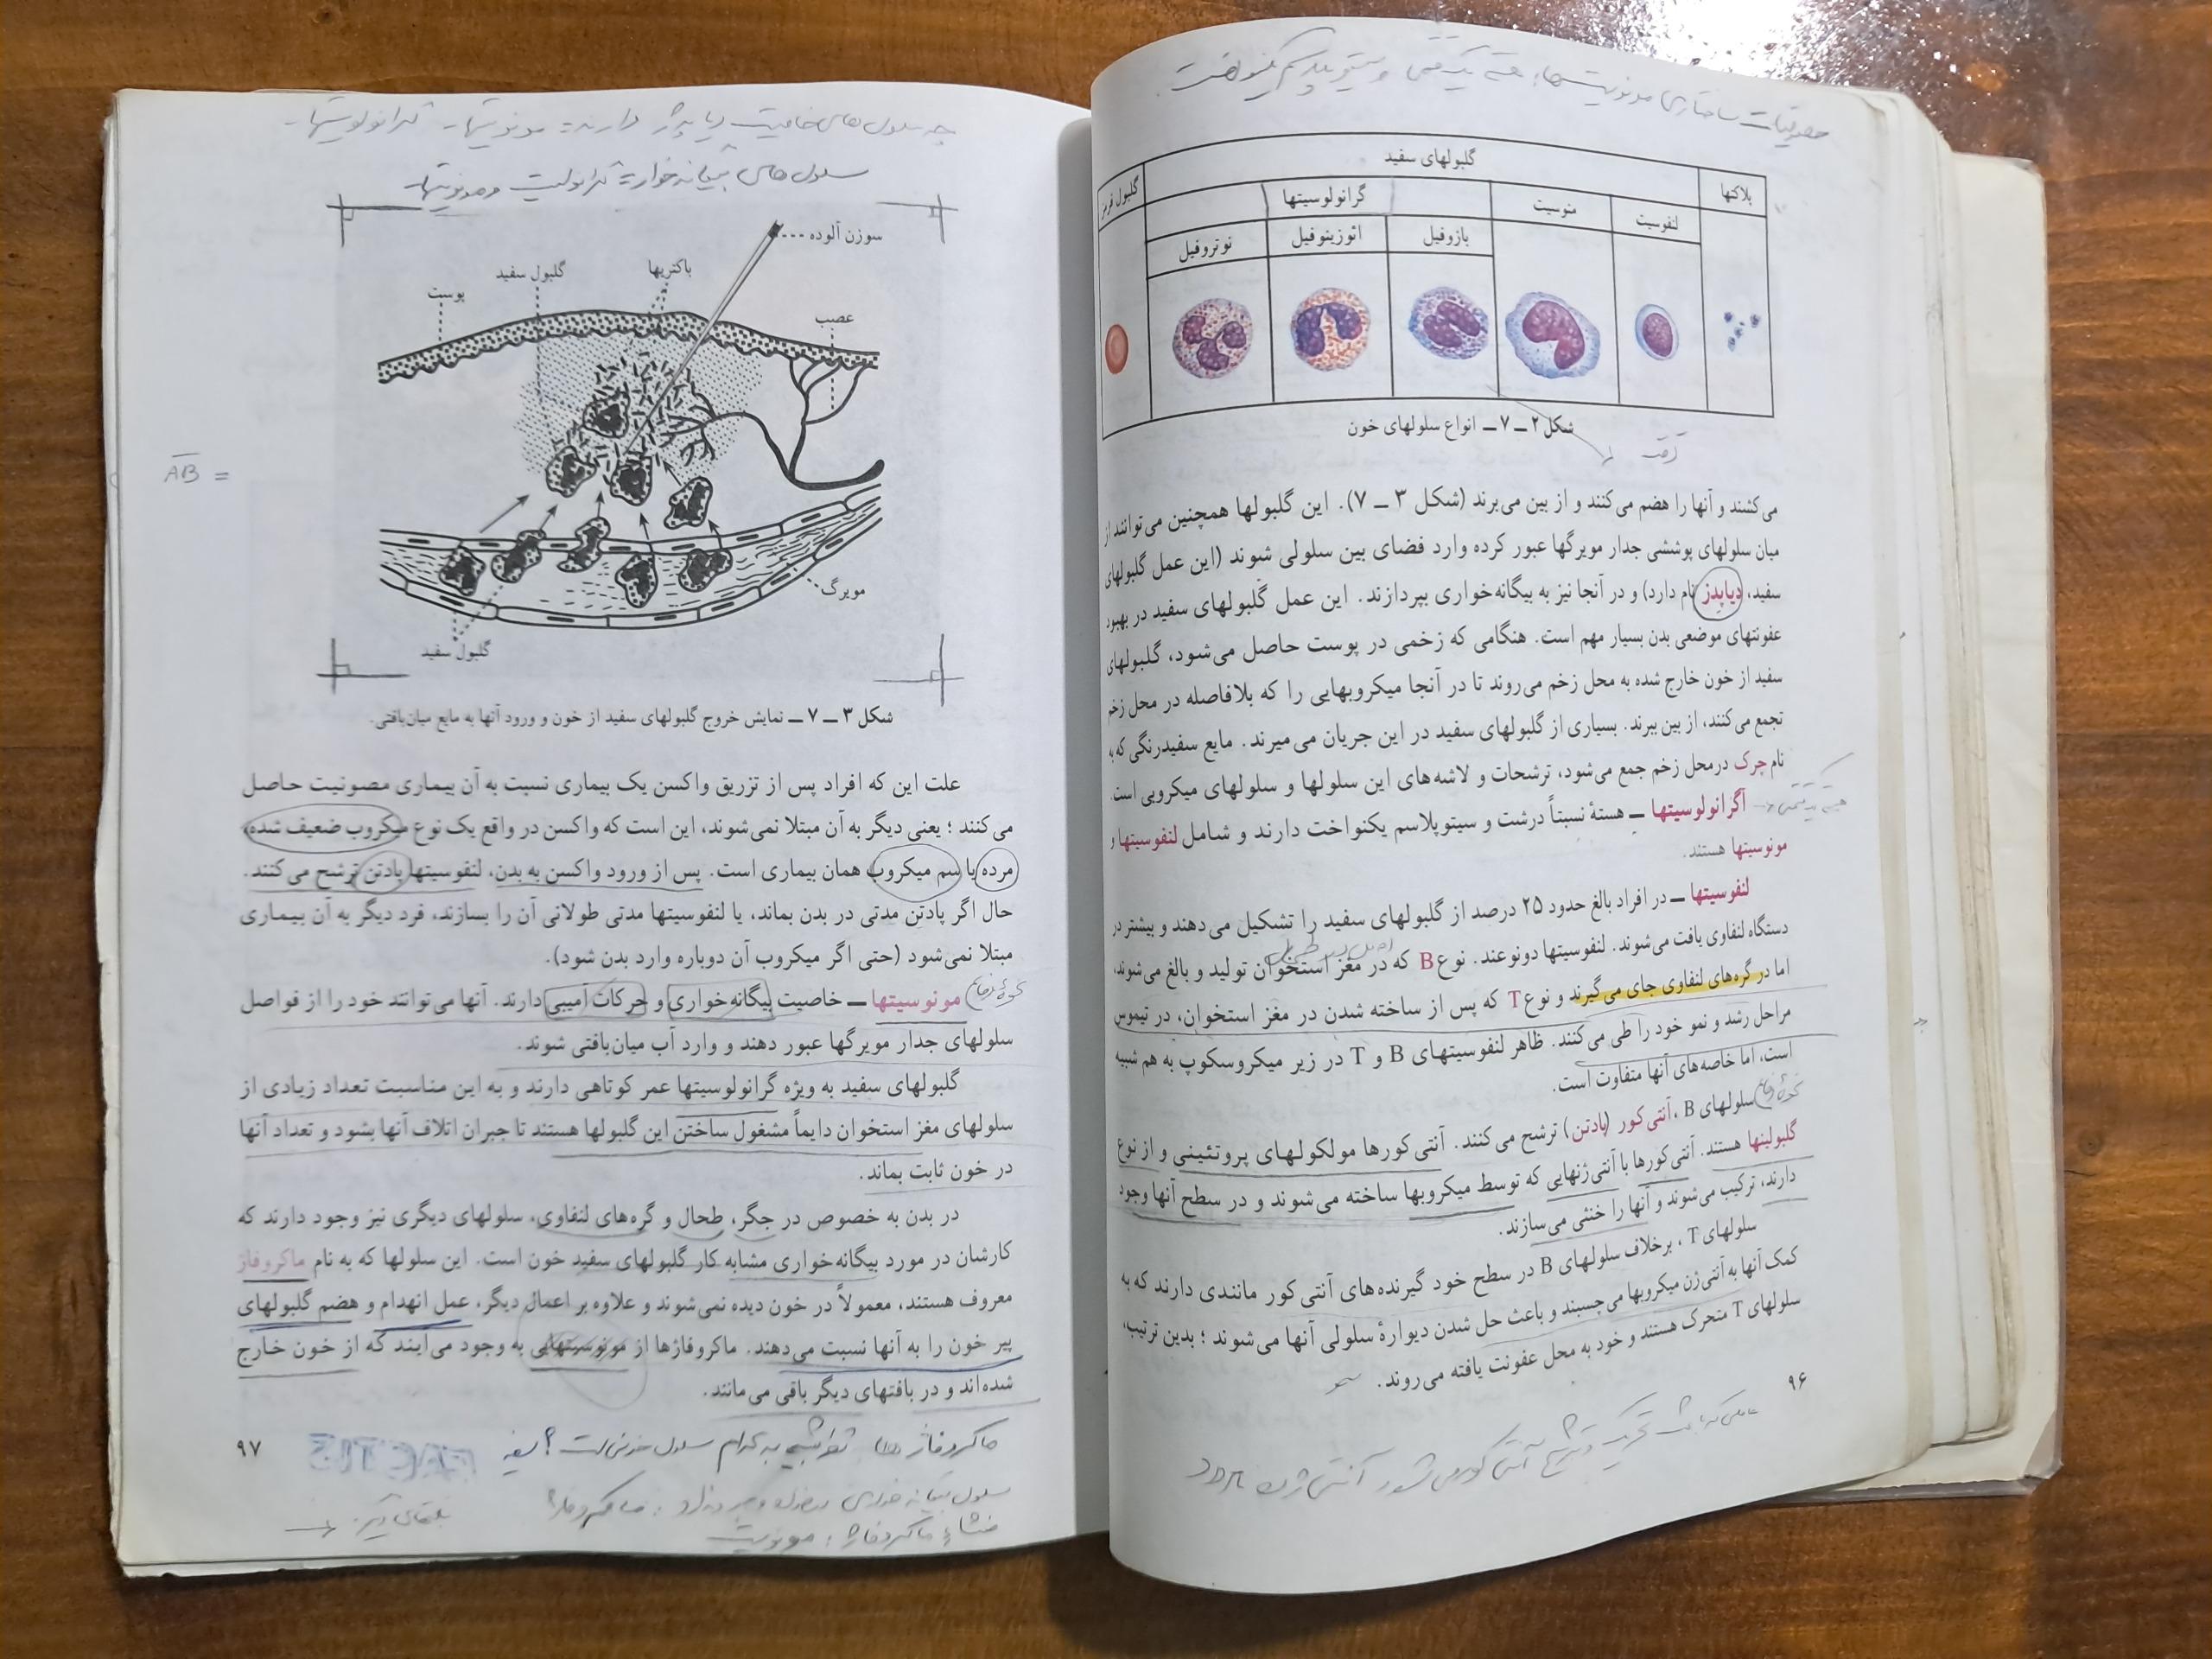 خصوصیات ساختاری مونوسیتها: هسته یک قسمتی و سیتوپلاسم یکنواخت.
گلبولهای سفید
پلاکتها
لنفوسیت
منوسیت
گرانولوسیتها
گلبول قرمز
بازوفیل
ائوزینوفیل
نوتروفیل
شکل ۲ ــ ۷ ــ انواع سلولهای خون
دقت
می‌کشند و آنها را هضم می‌کنند و از بین می‌برند (شکل ۳ ــ ۷). این گلبولها همچنین می‌توانند از
میان سلولهای پوششی جدار مویرگها عبور کرده وارد فضای بین سلولی شوند (این عمل گلبولهای
سفید، دیاپدز نام دارد) و در آنجا نیز به بیگانه‌خواری بپردازند. این عمل گلبولهای سفید در بهبود
عفونتهای موضعی بدن بسیار مهم است. هنگامی که زخمی در پوست حاصل می‌شود، گلبولهای
سفید از خون خارج شده به محل زخم می‌روند تا در آنجا میکروبهایی را که بلافاصله در محل زخم
تجمع می‌کنند، از بین ببرند. بسیاری از گلبولهای سفید در این جریان می‌میرند. مایع سفیدرنگی که به
نام چرک درمحل زخم جمع می‌شود، ترشحات و لاشه‌های این سلولها و سلولهای میکروبی است.
آگرانولوسیتها ــ هستهٔ نسبتاً درشت و سیتوپلاسم یکنواخت دارند و شامل لنفوسیتها و
مونوسیتها هستند.
لنفوسیتها ــ در افراد بالغ حدود ۲۵ درصد از گلبولهای سفید را تشکیل می‌دهند و بیشتر در
دستگاه لنفاوی یافت می‌شوند. لنفوسیتها دونوعند. نوع B که در مغز استخوان تولید و بالغ می‌شوند،
اما در گره‌های لنفاوی جای می‌گیرند و نوع T که پس از ساخته شدن در مغز استخوان، در تیموس
مراحل رشد و نمو خود را طی می‌کنند. ظاهر لنفوسیتهای B و T در زیر میکروسکوپ به هم شبیه
است، اما خاصه‌های آنها متفاوت است.
سلولهای B، آنتی‌کور (پادتن) ترشح می‌کنند. آنتی‌کورها مولکولهای پروتئینی و از نوع
گلبولینها هستند. آنتی‌کورها با آنتی‌ژنهایی که توسط میکروبها ساخته می‌شوند و در سطح آنها وجود
دارند، ترکیب می‌شوند و آنها را خنثی می‌سازند.
سلولهای T، برخلاف سلولهای B در سطح خود گیرنده‌های آنتی‌کور مانندی دارند که به
کمک آنها به آنتی‌ژن میکروبها می‌چسبند و باعث حل شدن دیوارهٔ سلولی آنها می‌شوند ؛ بدین ترتیب،
سلولهای T متحرک هستند و خود به محل عفونت یافته می‌روند.
۹۶
عاملی که باعث تحریک و ترشح آنتی کور می‌شود آنتی ژن نام دارد
چه سلول‌های خاصیت دیاپدز دارند: مونوسیتها - گرانولوسیتها -
سلول‌های بیگانه‌خوار: گرانولوسیت و مونوسیتها -
سوزن آلوده
باکتریها
گلبول سفید
پوست
عصب
AB =
مویرگ
گلبول سفید
شکل ۳ ــ ۷ ــ نمایش خروج گلبولهای سفید از خون و ورود آنها به مایع میان‌بافتی.
علت این که افراد پس از تزریق واکسن یک بیماری نسبت به آن بیماری مصونیت حاصل
می‌کنند ؛ یعنی دیگر به آن مبتلا نمی‌شوند، این است که واکسن در واقع یک نوع میکروب ضعیف شده،
مرده یا سم میکروب همان بیماری است. پس از ورود واکسن به بدن، لنفوسیتها پادتن ترشح می‌کنند.
حال اگر پادتن مدتی در بدن بماند، یا لنفوسیتها مدتی طولانی آن را بسازند، فرد دیگر به آن بیماری
مبتلا نمی‌شود (حتی اگر میکروب آن دوباره وارد بدن شود).
مونوسیتها ــ خاصیت بیگانه‌خواری و حرکات آمیبی دارند. آنها می‌توانند خود را از فواصل
سلولهای جدار مویرگها عبور دهند و وارد آب میان‌بافتی شوند.
گلبولهای سفید به ویژه گرانولوسیتها عمر کوتاهی دارند و به این مناسبت تعداد زیادی از
سلولهای مغز استخوان دایماً مشغول ساختن این گلبولها هستند تا جبران اتلاف آنها بشود و تعداد آنها
در خون ثابت بماند.
در بدن به خصوص در جگر، طحال و گره‌های لنفاوی، سلولهای دیگری نیز وجود دارند که
کارشان در مورد بیگانه‌خواری مشابه کار گلبولهای سفید خون است. این سلولها که به نام ماکروفاژ
معروف هستند، معمولاً در خون دیده نمی‌شوند و علاوه بر اعمال دیگر، عمل انهدام و هضم گلبولهای
پیر خون را به آنها نسبت می‌دهند. ماکروفاژها از مونوسیتهایی به وجود می‌آیند که از خون خارج
شده‌اند و در بافتهای دیگر باقی می‌مانند.
ماکروفاژها شبیه به کدام سلول خونی است؟ سفید
۹۷
منشاء ماکروفاژ: مونوسیت